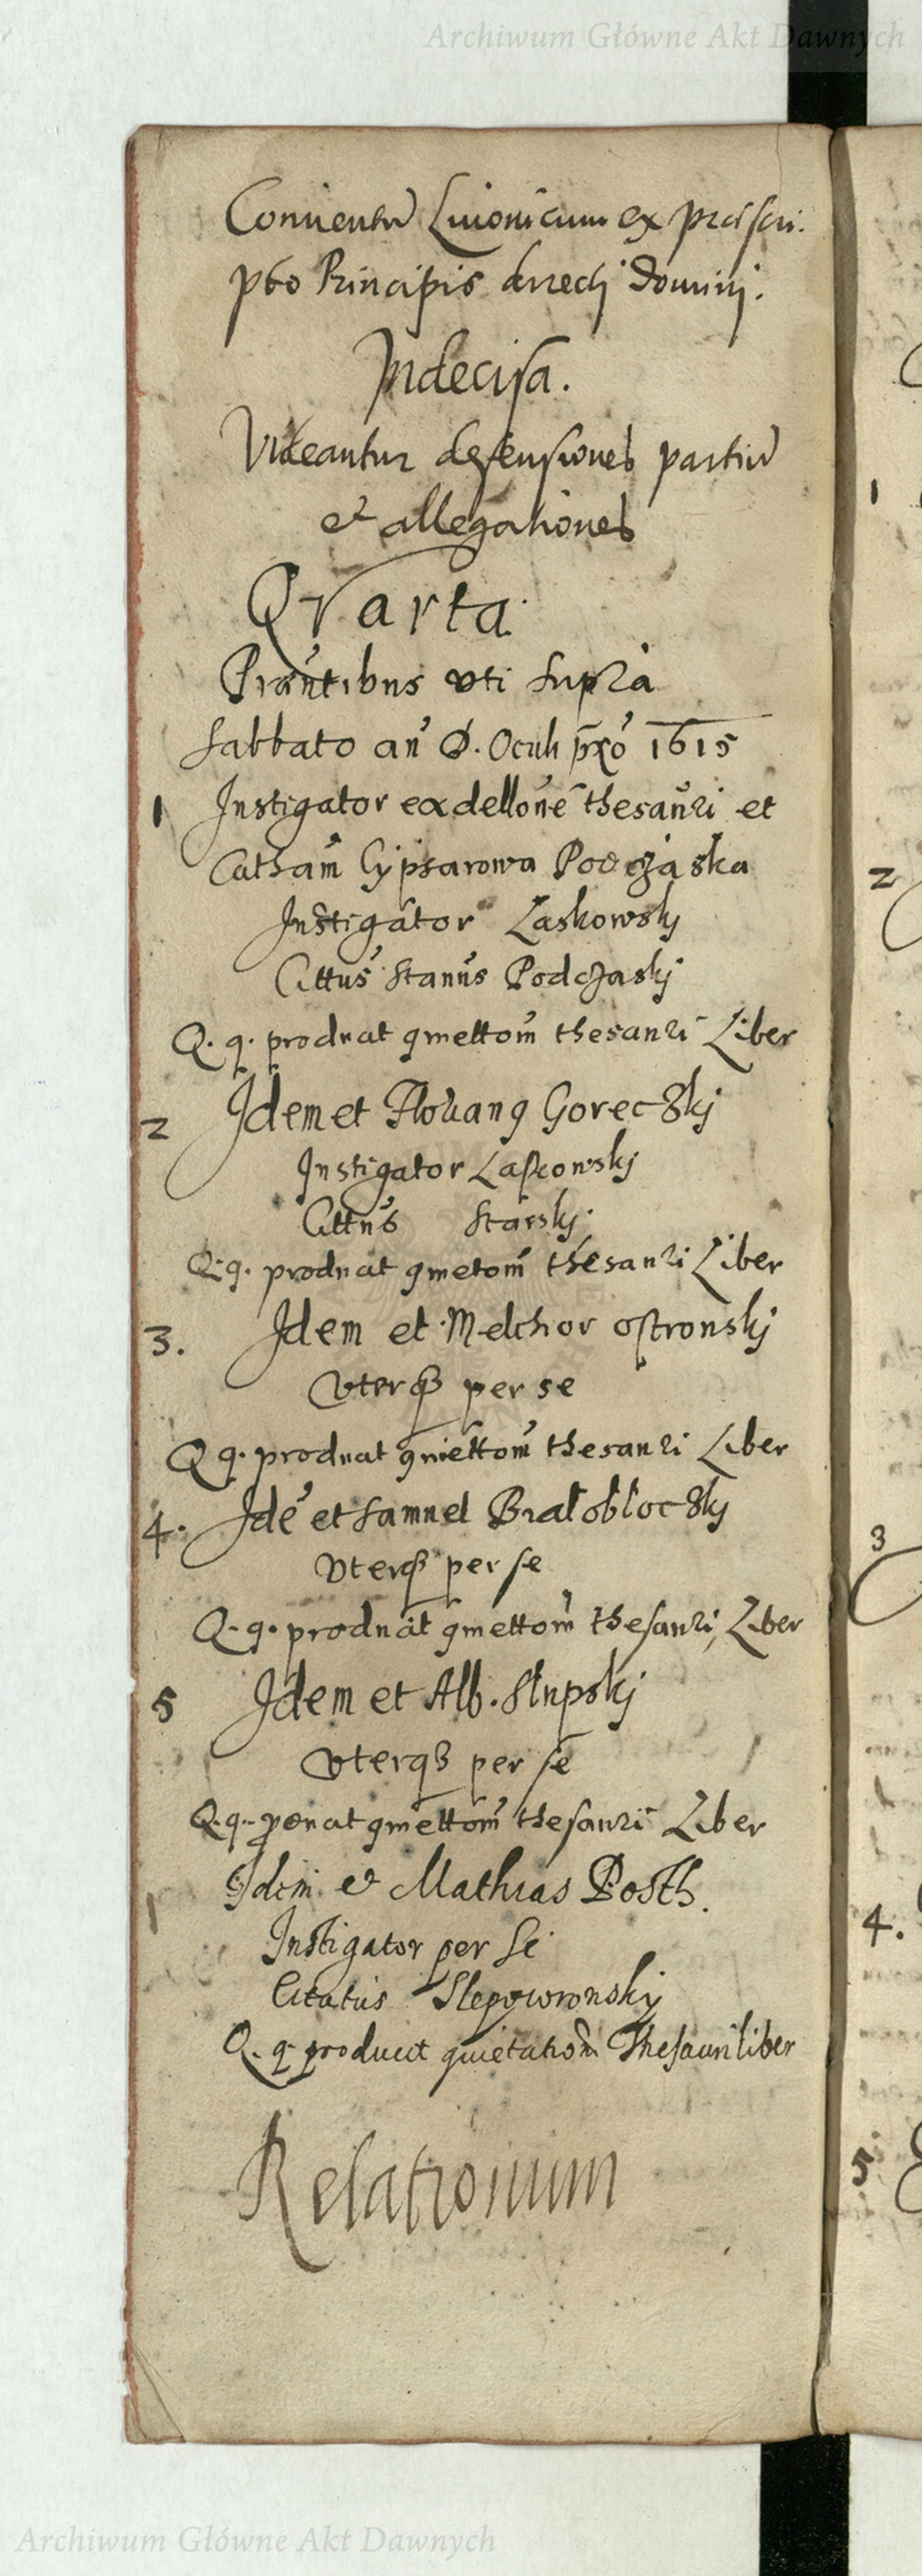 Archiwum Główne Akt Dawnych
Conuentu Liuonicum ex præscri-
pto Principis
Indecisa.
Videantur defensiones partiu
et allegationes
Qvarta
Pranтibus vti supra
Sabbato an D. Oculi pxo 1615
1 Instigator ex dellone thesauri et
Catham Cypsarowa Podczaska
Instigator Laskowsky
Cittus Stanus Podczaskj
Q. q. producat qmettom thesauri Liber
2 Idem et Goreczkj
Instigator Laskowskj
Cittus Starskj
Q. q. producat qmetom thesauri Liber
3. Idem et Melchor Ostronskj
Vterq per se
Q q. producat qmettom thesauri Liber
4. Ide et Samuel Bialobloczkj
Vterq per se
Q. q. producat qmettom thesauri Liber
5 Idem et Alb. Slupskj
Vterq per se
Q. q. qmettom thesauri Liber
Idem et Mathias Posth.
Instigator per se
Citatus Slepowronsky
Q. q. producit quietatiom Thesauri liber
Relationum
1
2
3
4.
5
Archiwum Główne Akt Dawnych